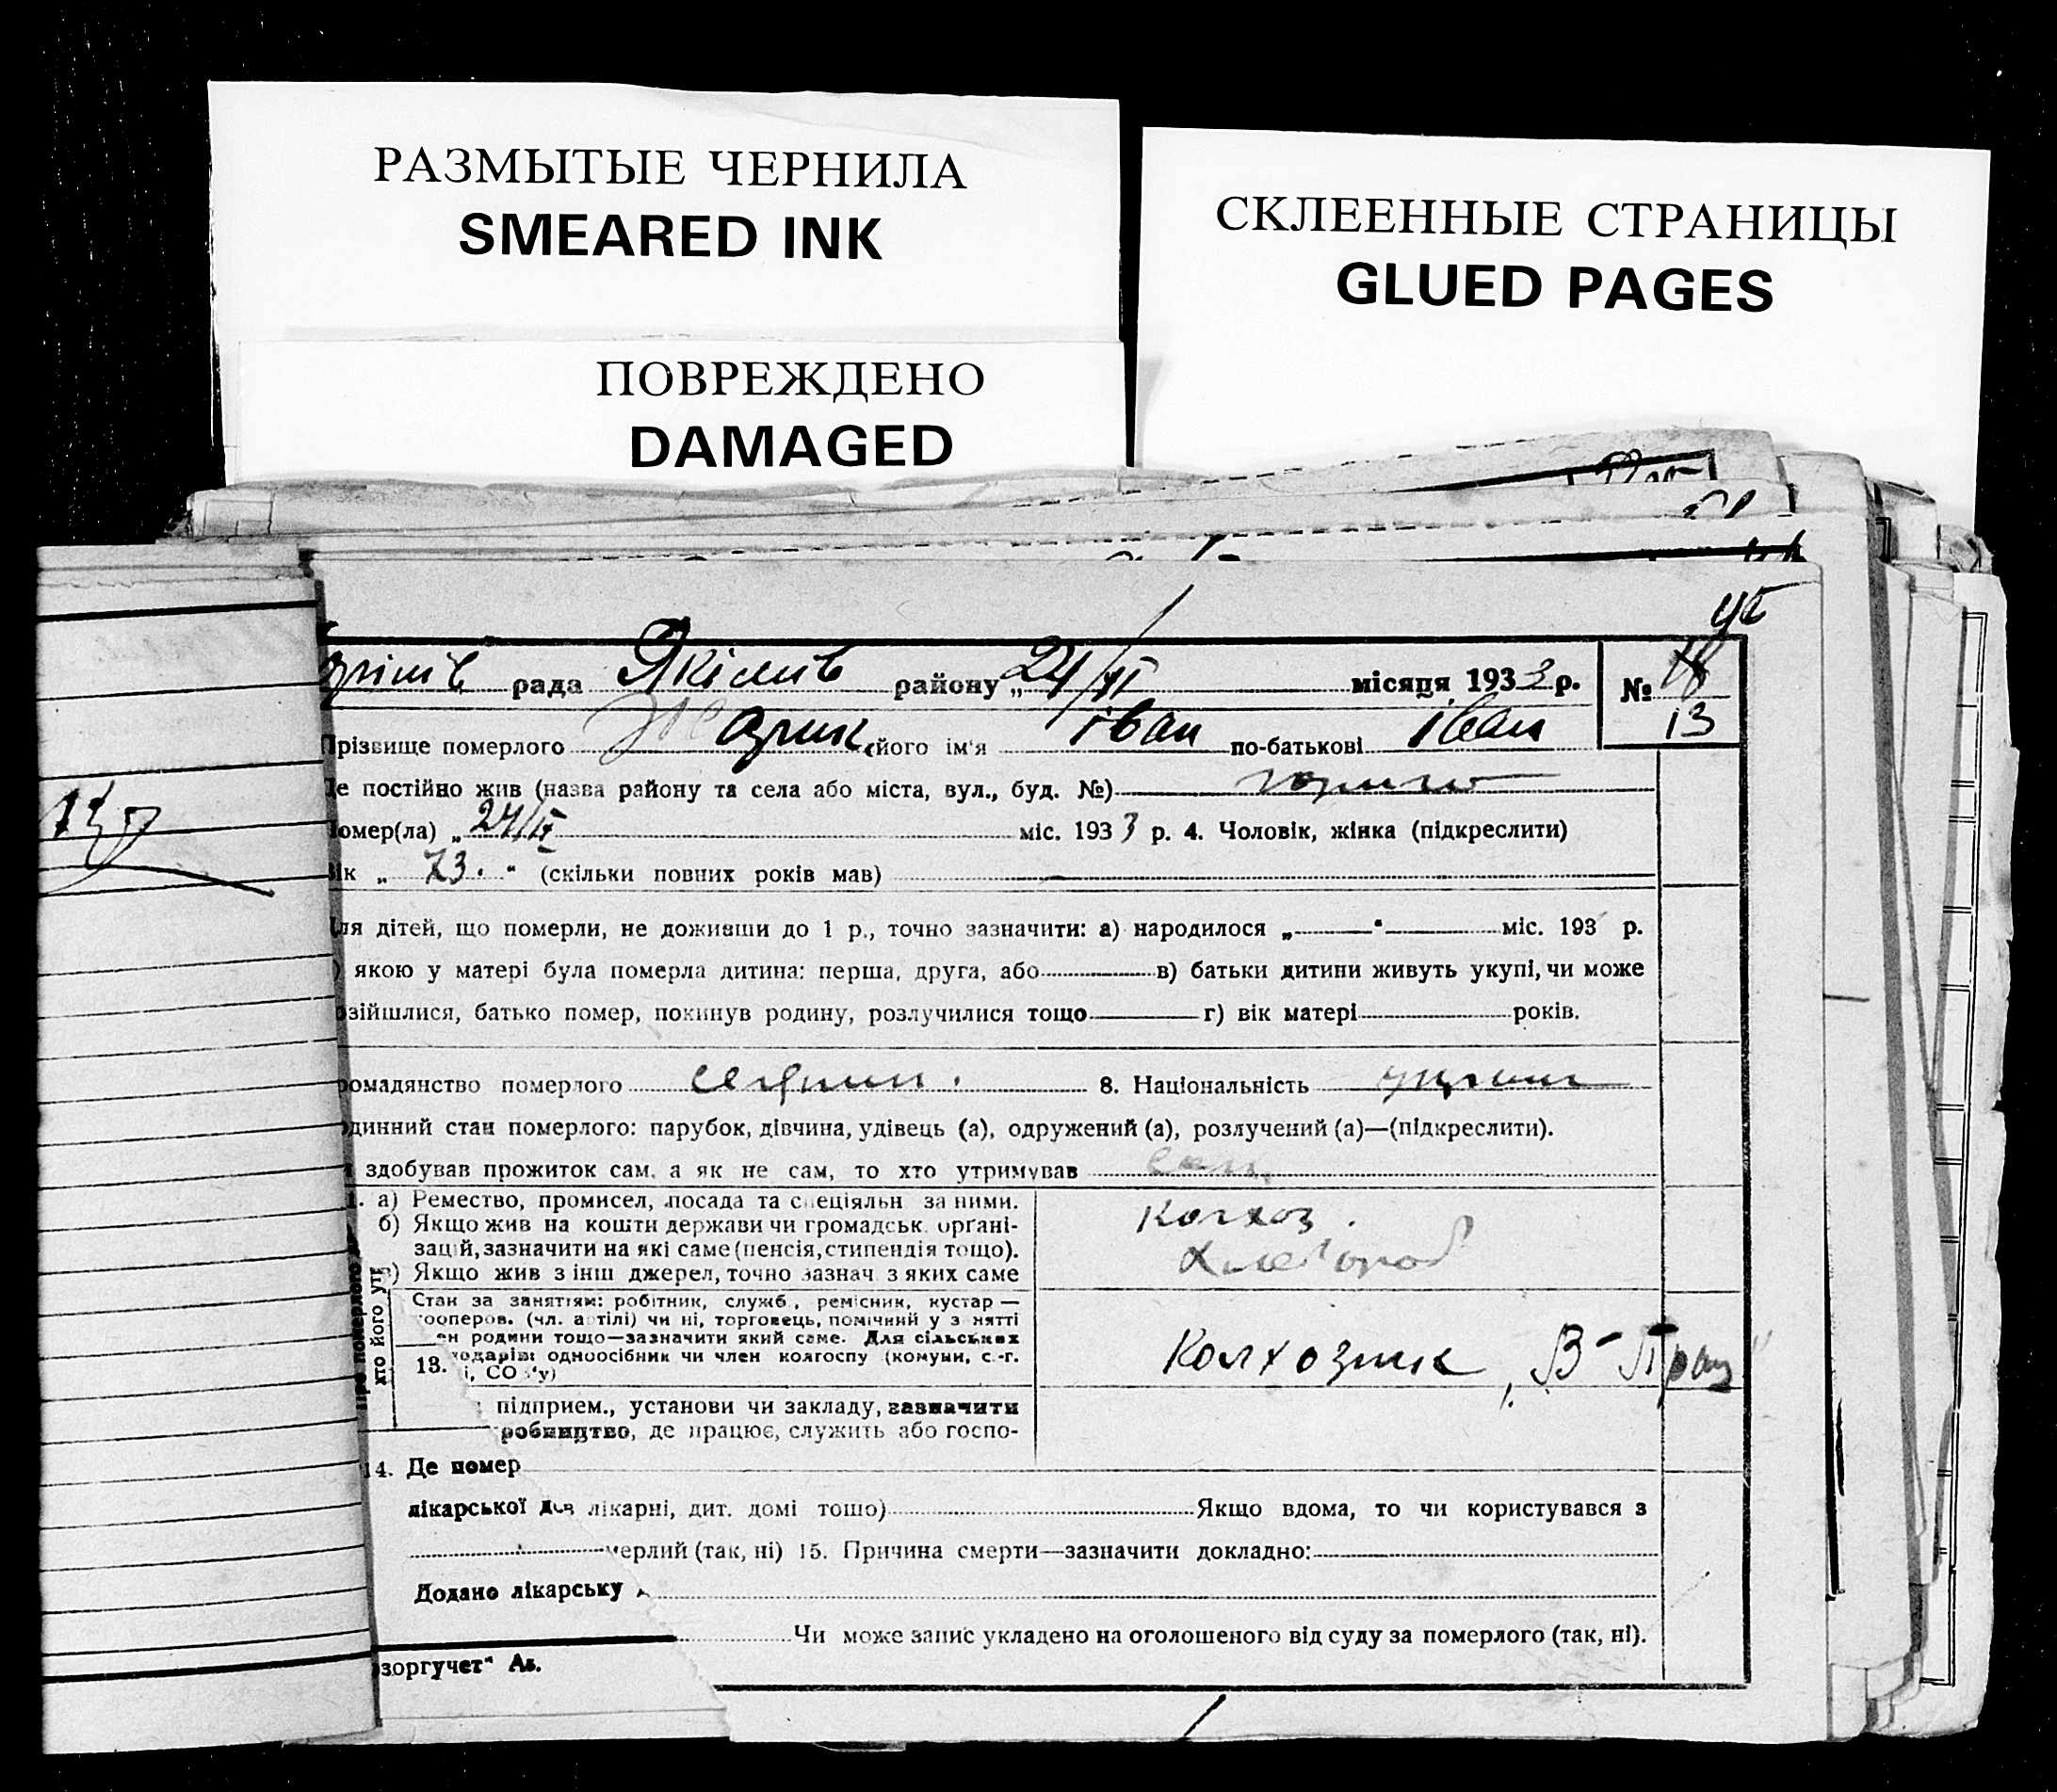 РАЗМЫТЫЕ ЧЕРНИЛА
SMEARED INK
СКЛЕЕННЫЕ СТРАНИЦЫ
GLUED PAGES
ПОВРЕЖДЕНО
DAMAGED
рада Якімів району „24/VI місяця 1933 р. №
13
Прізвище померлого його ім'я Іван по-батькові Іван
Де постійно жив (назва району та села або міста, вул., буд. №)
Помер(ла) „ міс. 1933 р. 4. Чоловік, жінка (підкреслити)
Вік „ 73. “ (скільки повних років мав)
Для дітей, що померли, не доживши до 1 р., точно зазначити: а) народилося „ “ міс. 193 р.
) якою у матері була померла дитина: перша, друга, або в) батьки дитини живуть укупі, чи може
озійшлися, батько помер, покинув родину, розлучилися тощо г) вік матері років.
ромадянство померлого 8. Національність
одинний стан померлого: парубок, дівчина, удівець (а), одружений (а), розлучений (а)—(підкреслити).
здобував прожиток сам, а як не сам, то хто утримував сам.
а) Ремество, промисел, посада та спеціяльн за ними.
б) Якщо жив на кошти держави чи громадськ. органі-
зацій, зазначити на які саме (пенсія, стипендія тощо).
в) Якщо жив з інш джерел, точно зазнач з яких саме
Колхоз.
Хлебороб
хто його утр
Стан за заняттям: робітник, служб., ремісник, кустар —
кооперов. (чл. артілі) чи ні, торговець, помічний у з нятті
ен родини тощо—зазначити який саме. Для сільських
одарів: одноосібник чи член колгоспу (комуни, с.-г.
13. і, СО 'у)
Колхозник,
підприєм., установи чи закладу, зазначити
робництво, де працює, служить або госпо-
14. Де помер
лікарської лікарні, дит. домі тощо) Якщо вдома, то чи користувався з
мерлий (так, ні) 15. Причина смерти—зазначити докладно:
Додано лікарську
Чи може запис укладено на оголошеного від суду за померлого (так, ні).
зоргучет“